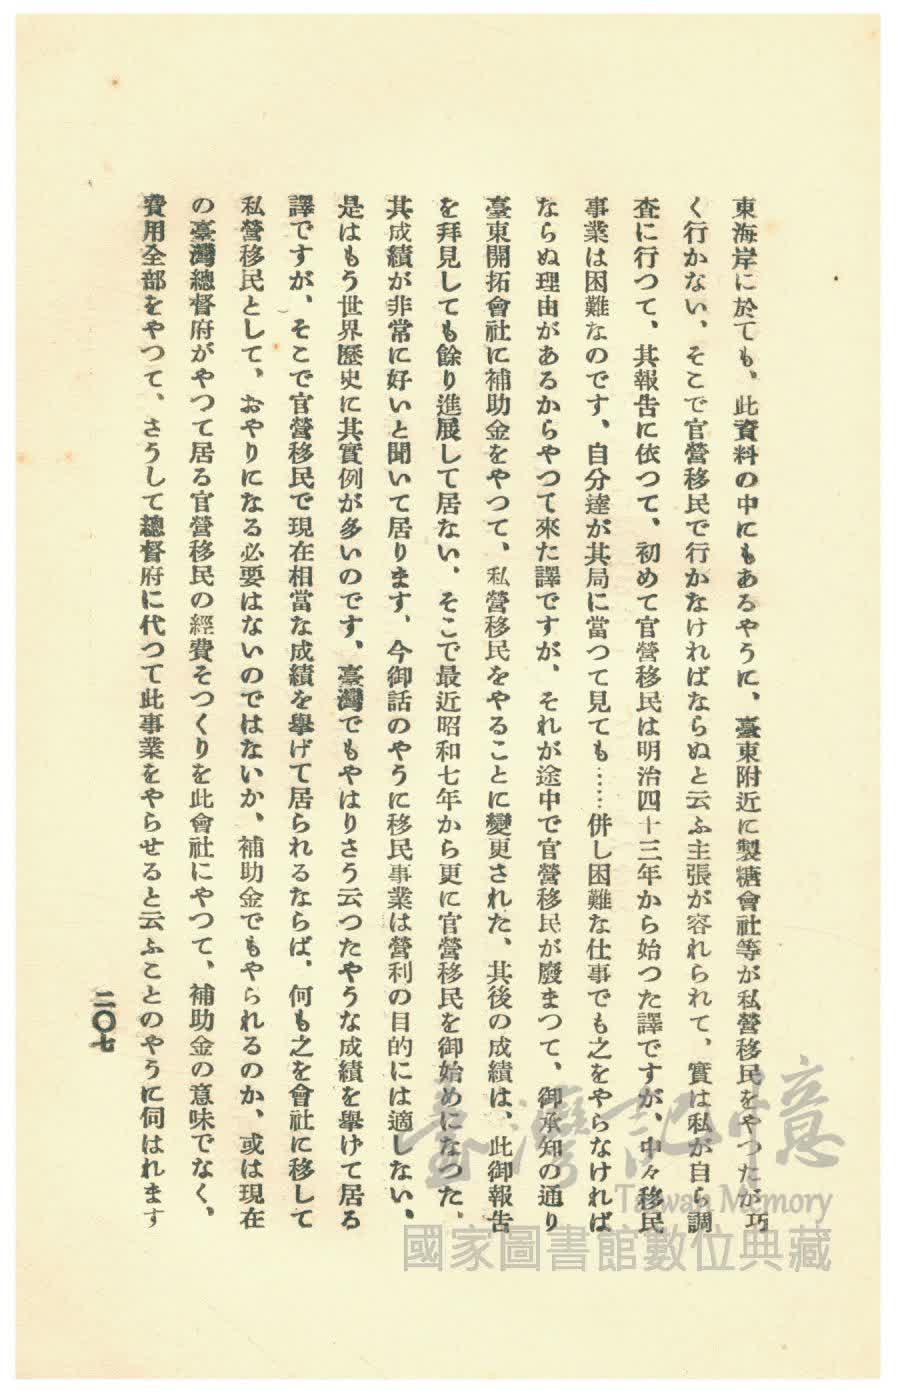 東海岸に於ても、此資料の中にもあるやうに、臺東附近に製糖會社等が私營移民をやつたが巧
く行かない、そこで官營移民で行かなければならぬと云ふ主張が容れられて、實は私が自ら調
査に行つて、其報告に依つて、初めて官營移民は明治四十三年から始つた譯ですが、中々移民
事業は困難なのです、自分達が其局に當つて見ても……併し困難な仕事でも之をやらなければ
ならぬ理由があるからやつて來た譯ですが、それが途中で官營移民が廢まつて、御承知の通り
臺東開拓會社に補助金をやつて、私營移民をやることに變更された、其後の成績は、此御報告
を拜見しても餘り進展して居ない、そこで最近昭和七年から更に官營移民を御始めになつた、
其成績が非常に好いと聞いて居ります、今御話のやうに移民事業は營利の目的には適しない、
是はもう世界歷史に其實例が多いのです、臺灣でもやはりさう云つたやうな成績を擧げて居る
譯ですが、そこで官營移民で現在相當な成績を擧げて居られるならば、何も之を會社に移して
私營移民として、おやりになる必要はないのではないか、補助金でもやられるのか、或は現在
の臺灣總督府がやつて居る官營移民の經費そつくりを此會社にやつて、補助金の意味でなく、
費用全部をやつて、さうして總督府に代つて此事業をやらせると云ふことのやうに伺はれます
二〇七
臺灣記憶
Taiwan Memory
國家圖書館數位典藏